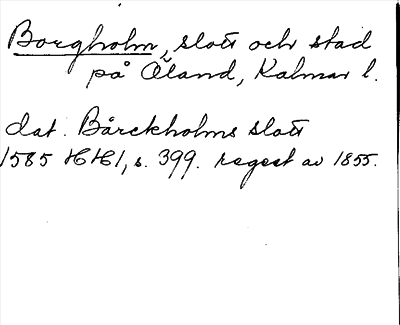 Borgholm, slott och stad
på Öland, Kalmar l.
dat. Bårckholms slott
1585 HH1, s. 399. regest av 1855.